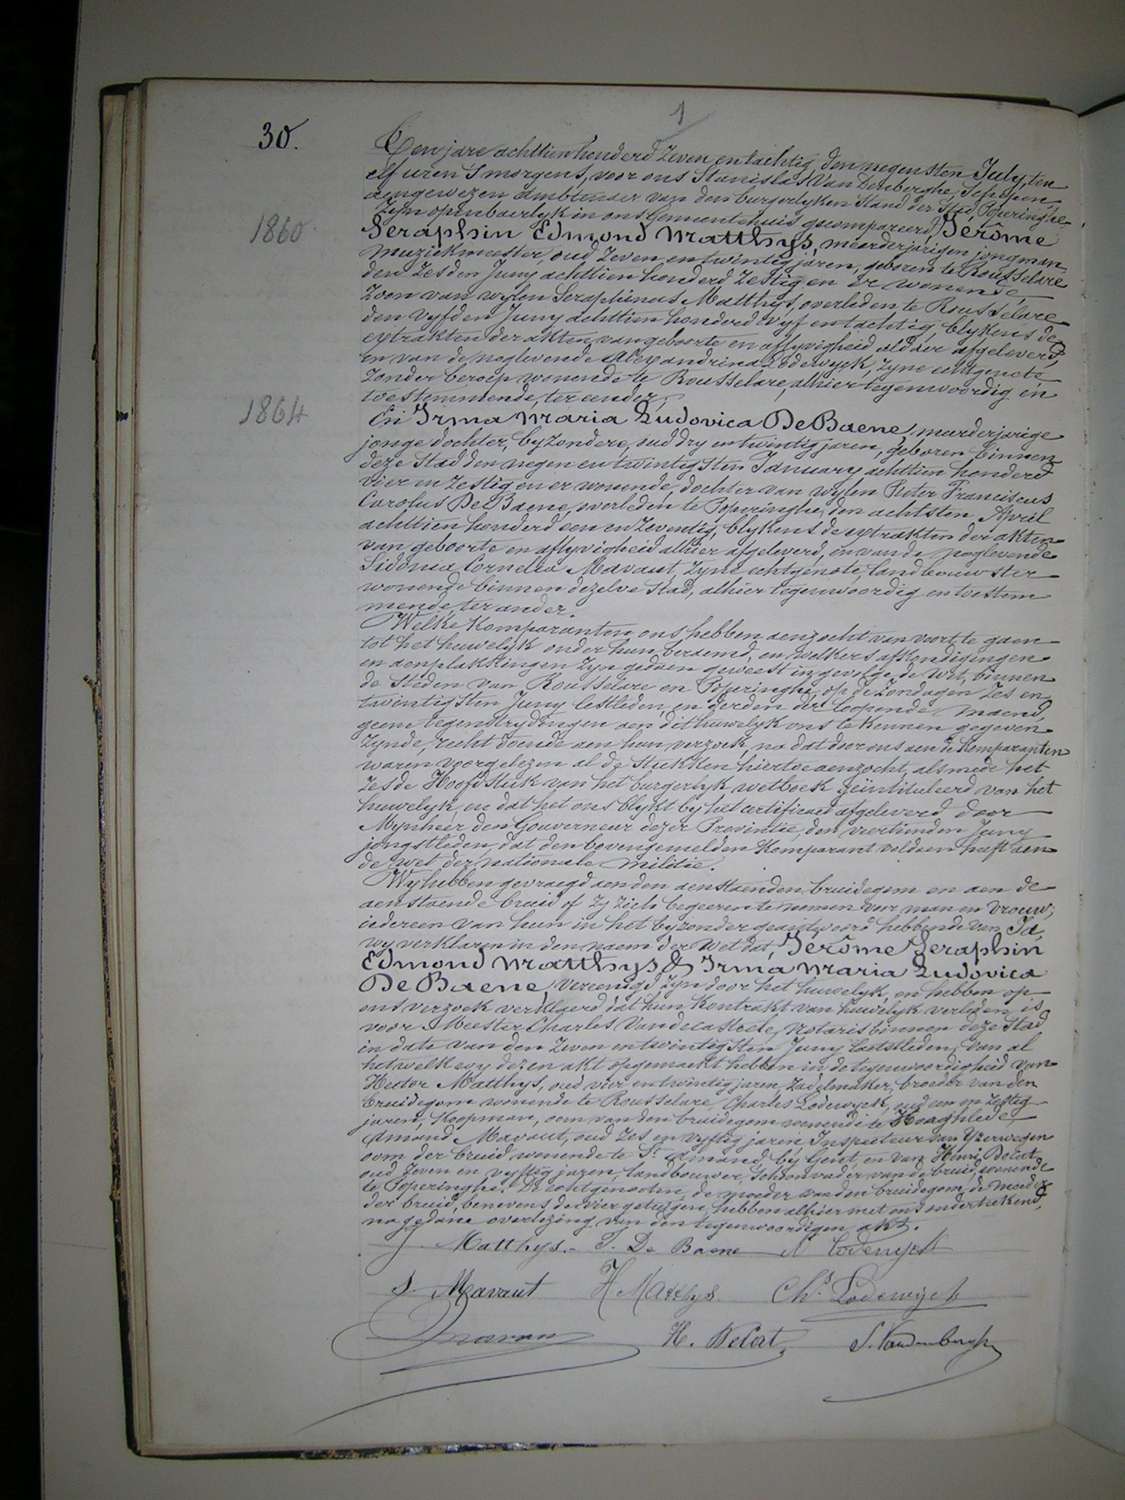 1
30.
Ten jare achttienhonderd zeven en tachtig, den negensten July, ten
elf uren 's morgens, voor ons Stanislas Van Denberghe, Schepen,
aengewezen ambtenaer van den burgerlyken stand der stad Poperinghe
zyn openbaerlyk in ons Gemeentehuis gecompareerd, Jérôme
1860
Seraphin Edmond Matthys, meerderjarigen jongman,
muziekmeester, oud zeven en twintig jaren, geboren te Rousselare
den zesden Juny achttien honderd zestig en er wonende
Zoon van wylen Seraphinus Matthys, overleden te Rousselare
den vyfden Juny achttien honderd vyf en tachtig, blykens de
extrakten der akten van geboorte en aflyvigheid aldaer afgeleverd,
en van de naglevende Alexandrina Lodewyck, zyne echtgenote
zonder beroep wonende te Rousselare, alhier tegenwoordig en
toestemmende, ter eender,
1864
En Irma Maria Ludovica De Baene, meerderjarige
jonge dochter, byzondere, oud dry en twintig jaren, geboren binnen
deze stad den negen en twintigsten January achttien honderd
vier en zestig en er wonende, dochter van wylen Pieter Franciscus
Carolus De Baene, overleden te Poperinghe, den achtsten April
achttien honderd een en zeventig, blykens de extrakten der akten
van geboorte en aflyvigheid alhier afgeleverd, en van de naglevende
Sidonia Cornelia Mavaut, zyne echtgenote, landbouwster
wonende binnen dezelve stad, alhier tegenwoordig en toestem
mende, ter ander.
Welke Komparanten ons hebben aenzocht van voort te gaen
tot het huwelyk onder hun beraemd, en welkers afkondigingen
en aenplekkingen zyn gedaen geweest ingevolge de Wet, binnen
de steden van Rousselare en Poperinghe, op de zondagen zes en
twintigsten Juny lestleden en derden der loopende maend,
geene tegenstrydingen aen dit huwelyk ons te kennen gegeven
zynde, recht doende aen hun verzoek, na dat door ons aen de Komparanten
waren voorgelezen al de stukken hiertoe aenzocht, alsmede het
zesde Hoofdstuk van het burgerlyk wetboek geïntituleerd van het
huwelyk, en dat het ons blykt by het certificaet afgeleverd door
Mynheer den Gouverneur dezer Provintie, den veertienden Juny
jongstleden dat den bovengemelden Komparant voldaen heeft aen
de wet der nationale militie.
Wy hebben gevraegd aen den aenstaenden bruidegom en aen de
aenstaende bruid of zy zich begeeren te nemen voor man en vrouw,
iedereen van hun in het byzonder geantwoord hebbende van Ja,
wy verklaren in den naem der Wet dat Jérôme Seraphin
Edmond Matthys & Irma Maria Ludovica
De Baene vereenigd zyn door het huwelyk, en hebben op
ons verzoek verklaerd dat hun Kontrakt van huwelyk verleden is
voor Meester Charles Vandecasteele, Notaris binnen deze stad
in date van den zeven en twintigsten Juny laetstleden, van al
hetwelk wy dezen akt opgemaekt hebben in de tegenwoordigheid van
Hector Matthys, oud vier en twintig jaren, zadelmaker, broeder van den
bruidegom wonende te Rousselare, Charles Lodewyck, oud een en zestig
jaren, Koopman, oom van den bruidegom wonende te Hooghlede,
Amand Mavaut, oud zes en vyftig jaren, Inspecteur van Yzerwegen
oom der bruid, wonende te St Amand by Gent, en van Henri Decat
oud zeven en vyftig jaren, landbouwer, schoonvader van de bruid, wonende
te Poperinghe. De echtgenooten, de moeder van den bruidegom, de moeder
der bruid, benevens de vier getuigen hebben alhier met ons onderteekend,
na gedane overlezing van den tegenwoordigen akt.
J. Matthys. I. De Baene A Lodewyck
S. Mavaut H Matthys. Chs. Lodewyck
H. Decat S. Vandenberghe